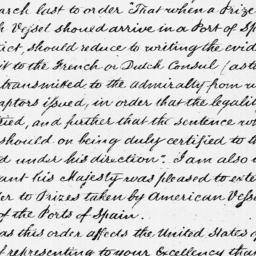 arch last to order That when a Prize
h Vessel should arrive in a Port of Sp
ict, should reduce to writing the evid
it to the French or Dutch Consul (as t
transmitted to the admiralty from w
aptors issued, in order that the legalit
ied, and further that the sentence w
should on being duly certified to t
d under his direction". I am also i
ant his Majesty was pleased to exte
er to Prizes taken by American Vesse
of the Ports of Spain.
as this order affects the United States o
f representing to your Excellency tha